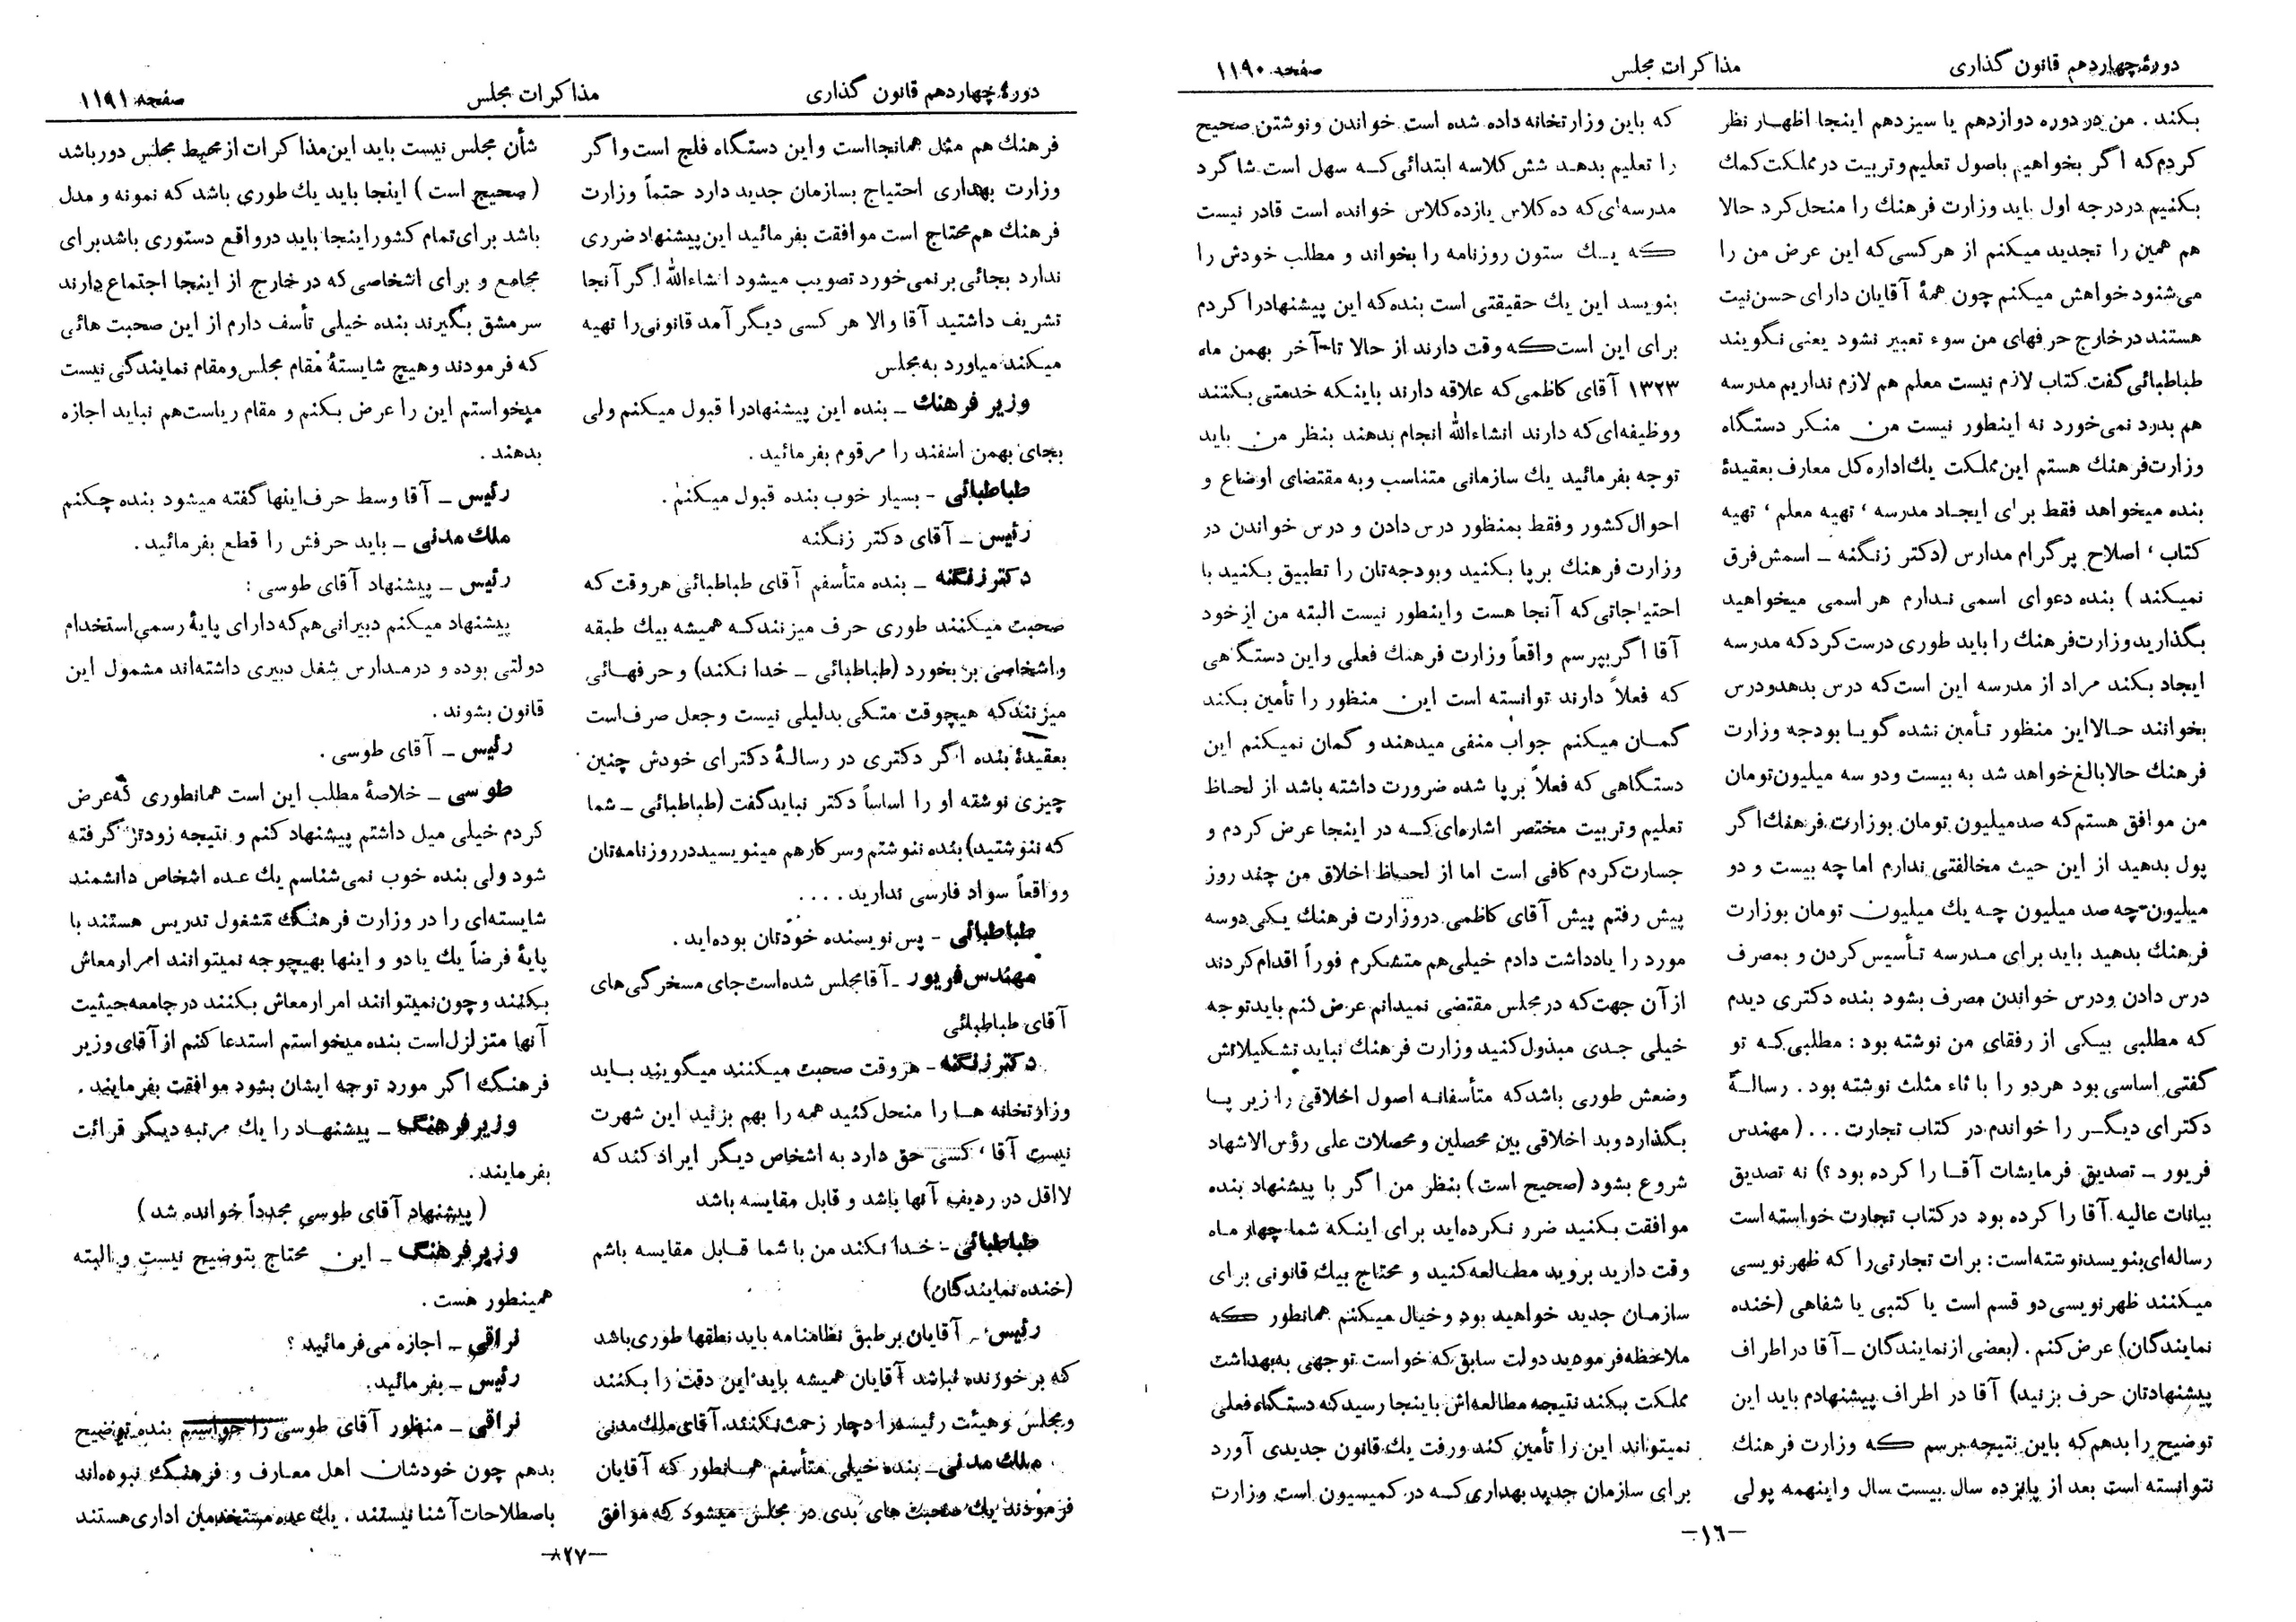 دورهٔ چهاردهم قانون گذاری
مذاکرات مجلس
صفحه ۱۱۹۰
بکنند . من در دوره دوازدهم یا سیزدهم اینجا اظهار نظر
کردم که اگر بخواهیم باصول تعلیم و تربیت در مملکت کمک
بکنیم در درجه اول باید وزارت فرهنك را منحل کرد حالا
هم همین را تجدید میکنم از هر کسی که این عرض من را
می‌شنود خواهش میکنم چون همهٔ آقایان دارای حسن نیت
هستند در خارج حرفهای من سوء تعبیر نشود یعنی نگویند
طباطبائی گفت کتاب لازم نیست معلم هم لازم نداریم مدرسه
هم بدرد نمی‌خورد نه اینطور نیست من منکر دستگاه
وزارت فرهنك هستم این مملکت یك اداره کل معارف بعقیدهٔ
بنده میخواهد فقط برای ایجاد مدرسه ، تهیه معلم ، تهیه
کتاب ، اصلاح پرگرام مدارس (دکتر زنگنه ــ اسمش فرق
نمیکند ) بنده دعوای اسمی ندارم هر اسمی میخواهید
بگذارید وزارت فرهنك را باید طوری درست کرد که مدرسه
ایجاد بکند مراد از مدرسه این است که درس بدهد و درس
بخوانند حالا این منظور تأمین نشده گویا بودجه وزارت
فرهنك حالا بالغ خواهد شد به بیست و دو سه میلیون تومان
من موافق هستم که صد میلیون تومان بوزارت فرهنك اگر
پول بدهید از این حیث مخالفتی ندارم اما چه بیست و دو
میلیون چه صد میلیون چه یك میلیون تومان بوزارت
فرهنك بدهید باید برای مدرسه تأسیس کردن و بمصرف
درس دادن و درس خواندن مصرف بشود بنده دکتری دیدم
که مطلبی بیکی از رفقای من نوشته بود : مطلبی که تو
گفتی اساسی بود هر دو را با ثاء مثلث نوشته بود . رسالهٔ
دکترای دیگر را خواندم در کتاب تجارت ... ( مهندس
فریور ــ تصدیق فرمایشات آقا را کرده بود ؟) نه تصدیق
بیانات عالیه آقا را کرده بود در کتاب تجارت خواسته است
رساله‌ای بنویسد نوشته است: برات تجارتی را که ظهرنویسی
میکنند ظهرنویسی دو قسم است یا کتبی یا شفاهی (خنده
نمایندگان) عرض کنم . (بعضی از نمایندگان ــ آقا در اطراف
پیشنهادتان حرف بزنید) آقا در اطراف پیشنهادم باید این
توضیح را بدهم که باین نتیجه برسم که وزارت فرهنك
نتوانسته است بعد از پانزده سال بیست سال و اینهمه پولی
که باین وزارتخانه داده شده است خواندن و نوشتن صحیح
را تعلیم بدهد شش کلاسه ابتدائی که سهل است شاگرد
مدرسه‌ای که ده کلاس یازده کلاس خوانده است قادر نیست
که یك ستون روزنامه را بخواند و مطلب خودش را
بنویسد این یك حقیقتی است بنده که این پیشنهاد را کردم
برای این است که وقت دارند از حالا تا آخر بهمن ماه
۱۳۲۳ آقای کاظمی که علاقه دارند باینکه خدمتی بکنند
ووظیفه‌ای که دارند انشاءالله انجام بدهند بنظر من باید
توجه بفرمائید یك سازمانی متناسب و به مقتضای اوضاع و
احوال کشور و فقط بمنظور درس دادن و درس خواندن در
وزارت فرهنك برپا بکنید و بودجه‌تان را تطبیق بکنید با
احتیاجاتی که آنجا هست و اینطور نیست البته من از خود
آقا اگر بپرسم واقعاً وزارت فرهنك فعلی و این دستگاهی
که فعلاً دارند توانسته است این منظور را تأمین بکند
گمان میکنم جواب منفی میدهند و گمان نمیکنم این
دستگاهی که فعلاً برپا شده ضرورت داشته باشد از لحاظ
تعلیم و تربیت مختصر اشاره‌ای که در اینجا عرض کردم و
جسارت کردم کافی است اما از لحاظ اخلاق من چند روز
پیش رفتم پیش آقای کاظمی در وزارت فرهنك یکی دو سه
مورد را یادداشت دادم خیلی هم متشکرم فوراً اقدام کردند
از آن جهت که در مجلس مقتضی نمیدانم عرض کنم باید توجه
خیلی جدی مبذول کنید وزارت فرهنك نباید تشکیلاتش
وضعش طوری باشد که متأسفانه اصول اخلاقی را زیر پا
بگذارد و بد اخلاقی بین محصلین و محصلات علی رؤس الاشهاد
شروع بشود (صحیح است) بنظر من اگر با پیشنهاد بنده
موافقت بکنید ضرر نکرده‌اید برای اینکه شما چهار ماه
وقت دارید بروید مطالعه کنید و محتاج بیك قانونی برای
سازمان جدید خواهید بود و خیال میکنم همانطور که
ملاحظه فرمودید دولت سابق که خواست توجهی به بهداشت
مملکت بکند نتیجه مطالعه‌اش باینجا رسید که دستگاه فعلی
نمیتواند این را تأمین کند و رفت یك قانون جدیدی آورد
برای سازمان جدید بهداری که در کمیسیون است وزارت
ــ۱٦ــ
دورهٔ چهاردهم قانون گذاری
مذاکرات مجلس
صفحه ۱۱۹۱
فرهنك هم مثل همانجا است و این دستگاه فلج است و اگر
وزارت بهداری احتیاج بسازمان جدید دارد حتماً وزارت
فرهنك هم محتاج است موافقت بفرمائید این پیشنهاد ضرری
ندارد بجائی بر نمی‌خورد تصویب میشود انشاءالله اگر آنجا
تشریف داشتید آقا والا هر کسی دیگر آمد قانونی را تهیه
میکند میاورد به مجلس
وزیر فرهنك ــ بنده این پیشنهاد را قبول میکنم ولی
بجای بهمن اسفند را مرقوم بفرمائید .
طباطبائی - بسیار خوب بنده قبول میکنم .
رئیس ــ آقای دکتر زنگنه
دکتر زنگنه ــ بنده متأسفم آقای طباطبائی هر وقت که
صحبت میکنند طوری حرف میزنند که همیشه بیك طبقه
و اشخاصی بر بخورد (طباطبائی ــ خدا نکند) و حرفهائی
میزنند که هیچوقت متکی بدلیلی نیست و جعل صرف است
بعقیدهٔ بنده اگر دکتری در رسالهٔ دکترای خودش چنین
چیزی نوشته او را اساساً دکتر نباید گفت (طباطبائی ــ شما
که ننوشتید) بنده ننوشتم و سرکار هم مینویسید در روزنامه‌تان
و واقعاً سواد فارسی ندارید . . . .
طباطبائی - پس نویسنده خودتان بوده‌اید .
مهندس فریور ــ آقا مجلس شده است جای مسخرگی‌های
آقای طباطبائی
دکتر زنگنه ــ هر وقت صحبت میکنند میگویند باید
وزارتخانه ها را منحل کنید همه را بهم بزنید این شهرت
نیست آقا ، کسی حق دارد به اشخاص دیگر ایراد کند که
لااقل در ردیف آنها باشد و قابل مقایسه باشد
طباطبائی - خدا نکند من با شما قابل مقایسه باشم
(خنده نمایندگان)
رئیس ــ آقایان بر طبق نظامنامه باید نطقها طوری باشد
که برخورنده نباشد آقایان همیشه باید این دقت را بکنند
و مجلس و هیئت رئیسه را دچار زحمت نکنند. آقای ملك مدنی
ملك مدنی ــ بنده خیلی متأسفم همانطور که آقایان
فرمودند یك صحبت های بدی در مجلس میشود که موافق
شأن مجلس نیست باید این مذاکرات از محیط مجلس دور باشد
( صحیح است ) اینجا باید یك طوری باشد که نمونه و مدل
باشد برای تمام کشور اینجا باید در واقع دستوری باشد برای
مجامع و برای اشخاصی که در خارج از اینجا اجتماع دارند
سرمشق بگیرند بنده خیلی تأسف دارم از این صحبت هائی
که فرمودند و هیچ شایستهٔ مقام مجلس و مقام نمایندگی نیست
میخواستم این را عرض بکنم و مقام ریاست هم نباید اجازه
بدهند .
رئیس ــ آقا وسط حرف اینها گفته میشود بنده چکنم
ملك مدنی ــ باید حرفش را قطع بفرمائید .
رئیس ــ پیشنهاد آقای طوسی :
پیشنهاد میکنم دبیرانی هم که دارای پایهٔ رسمی استخدام
دولتی بوده و در مدارس شغل دبیری داشته‌اند مشمول این
قانون بشوند .
رئیس ــ آقای طوسی .
طوسی ــ خلاصهٔ مطلب این است همانطوری که عرض
کردم خیلی میل داشتم پیشنهاد کنم و نتیجه زودتر گرفته
شود ولی بنده خوب نمی‌شناسم یك عده اشخاص دانشمند
شایسته‌ای را در وزارت فرهنگ مشغول تدریس هستند با
پایهٔ فرضاً یك یا دو و اینها بهیچوجه نمیتوانند امرار معاش
بکنند و چون نمیتوانند امرار معاش بکنند در جامعه حیثیت
آنها متزلزل است بنده میخواستم استدعا کنم از آقای وزیر
فرهنگ اگر مورد توجه ایشان بشود موافقت بفرمایند .
وزیر فرهنگ ــ پیشنهاد را یك مرتبه دیگر قرائت
بفرمایند .
( پیشنهاد آقای طوسی مجدداً خوانده شد )
وزیر فرهنگ ــ این محتاج بتوضیح نیست و البته
همینطور هست .
نراقی ــ اجازه می‌فرمائید ؟
رئیس ــ بفرمائید.
نراقی ــ منظور آقای طوسی را خواستم بنده توضیح
بدهم چون خودشان اهل معارف و فرهنگ نبوده‌اند
باصطلاحات آشنا نیستند . یك عده مستخدمین اداری هستند
ــ۸۲۷ــ